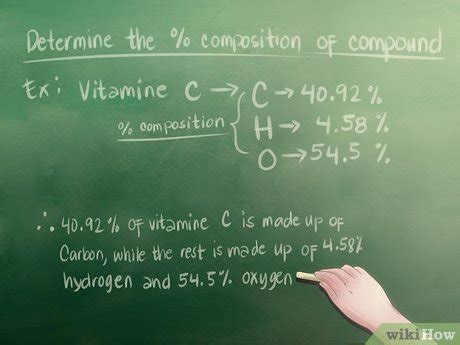 Determine the % composition of compound
Ex: Vitamine C → C → 40.92 %
% composition { H → 4.58 %
O → 54.5 %
∴ 40.92 % of vitamine C is made up of
Carbon, while the rest is made up of 4.58%
hydrogen and 54.5% oxygen
wikiHow